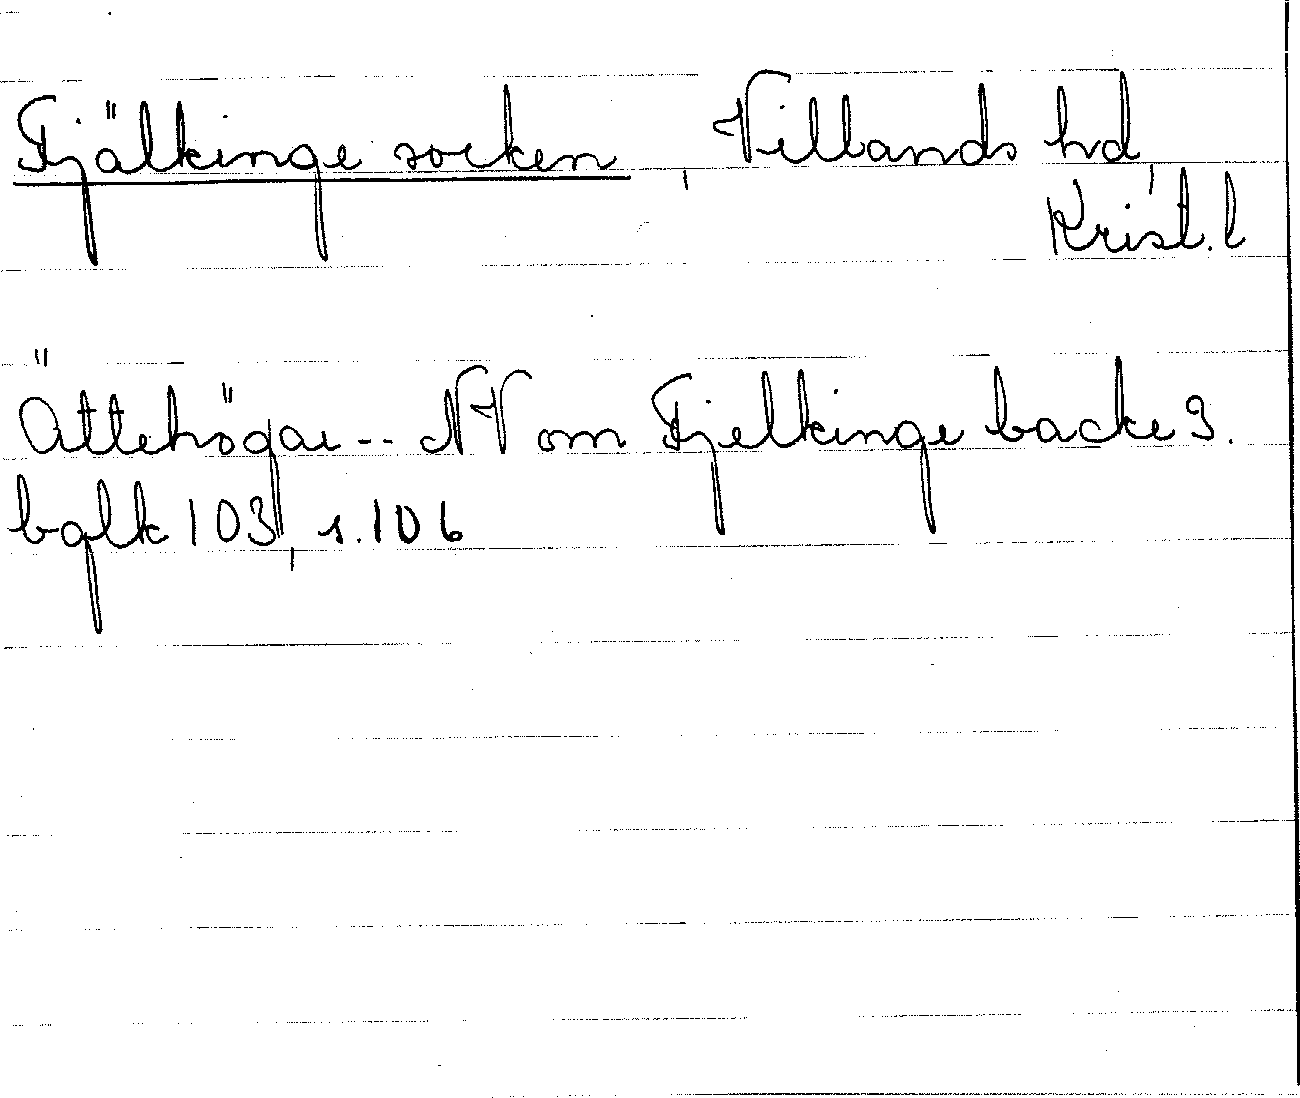 Fjälkinge socken, Villands hd,
Krist. l
Ättehögar -- NV om Fjelkinge backe 3.
bglk 103, s. 106